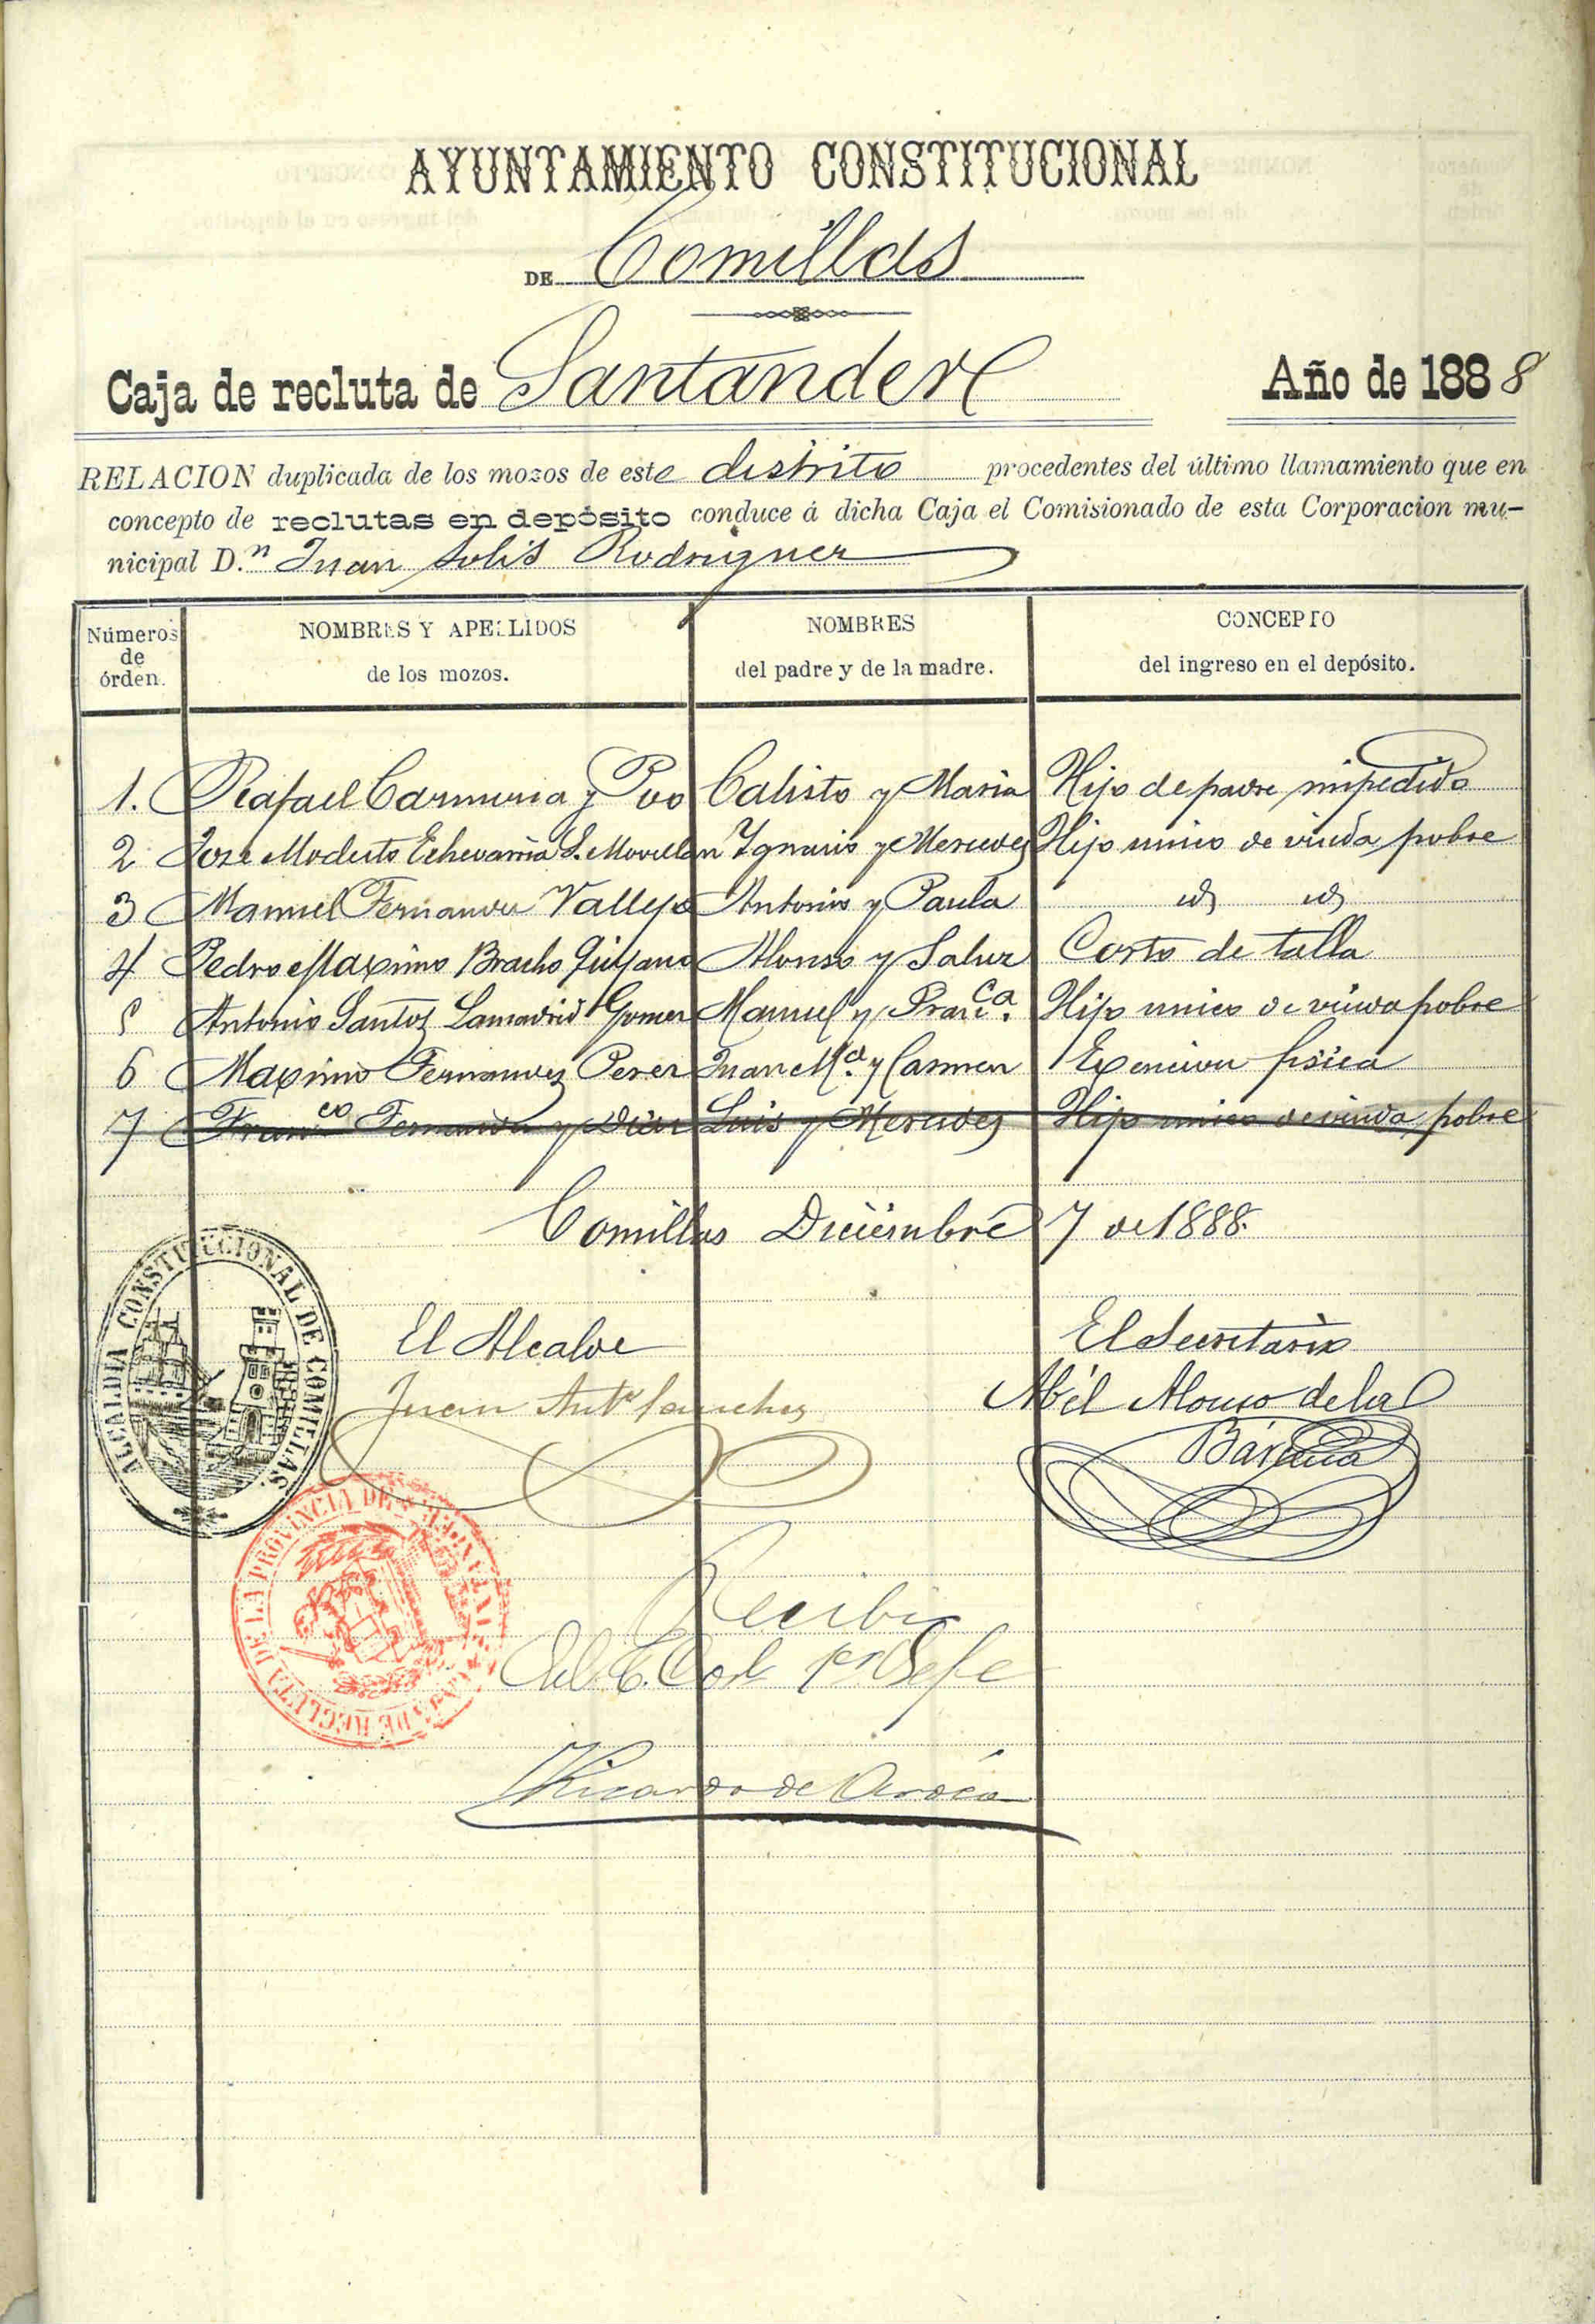 AYUNTAMIENTO CONSTITUCIONAL
DE Comillas
Caja de recluta de Santander Año de 1888
RELACION duplicada de los mozos de este distrito procedentes del último llamamiento que en
concepto de reclutas en depósito conduce á dicha Caja el Comisionado de esta Corporacion mu-
nicipal D.n Juan Solis Rodriguez
Números de órden. NOMBRES Y APELLIDOS de los mozos. NOMBRES del padre y de la madre. CONCEPTO del ingreso en el depósito.
1. Rafael Carmona y Poo Calisto y Maria Hijo de padre impedido
2 Jose Modesto Echevarria S. Movellan Ignacio y Mercedes Hijo unico de viuda pobre
3 Manuel Fernandez Vallejo Antonio y Paula id id
4 Pedro Maximo Bracho Quijano Alonso y Saluz Corto de talla
5 Antonio Santos Lamadrid Gomez Manuel y Franca. Hijo unico de viuda pobre
6 Maximo Fernandez Perez Juan Ma. y Carmen Exencion fisica
7 Franco Fernandez y Diaz Luis y Mercedes Hijo unico de viuda pobre
Comillas Diciembre 7 de 1888.
El Alcalde El Secretario
Juan Anto Sanchez Abél Alonso de la
Bárcena
ALCALDIA CONSTITUCIONAL DE COMILLAS.
DE RECLUTA DE LA PROVINCIA DE
Recibi
El T. Col 1er Jefe
Ricardo de